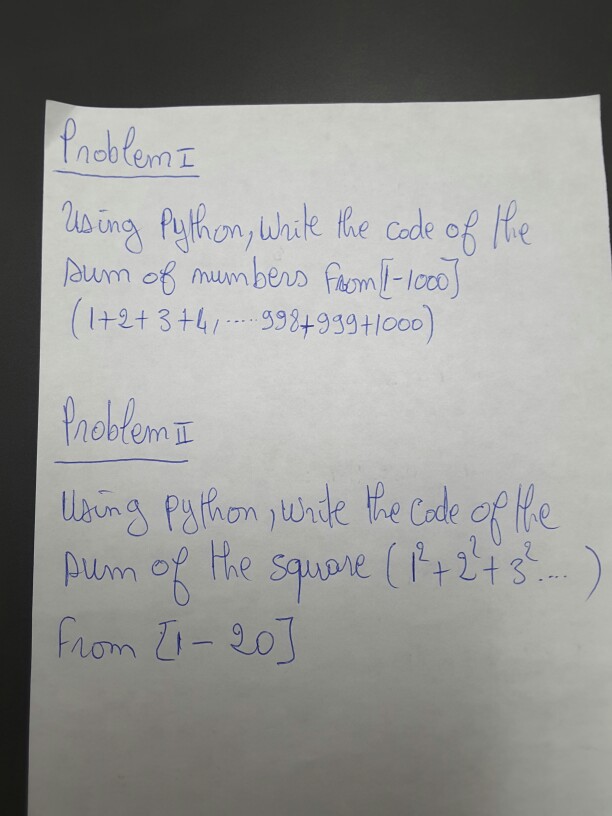 Problem I
Using Python, Write the code of the
sum of numbers from [1-1000]
(1+2+3+4, ..... 998+999+1000)
Problem II
Using python, write the code of the
sum of the square (1²+2²+3².... )
from [1-20]